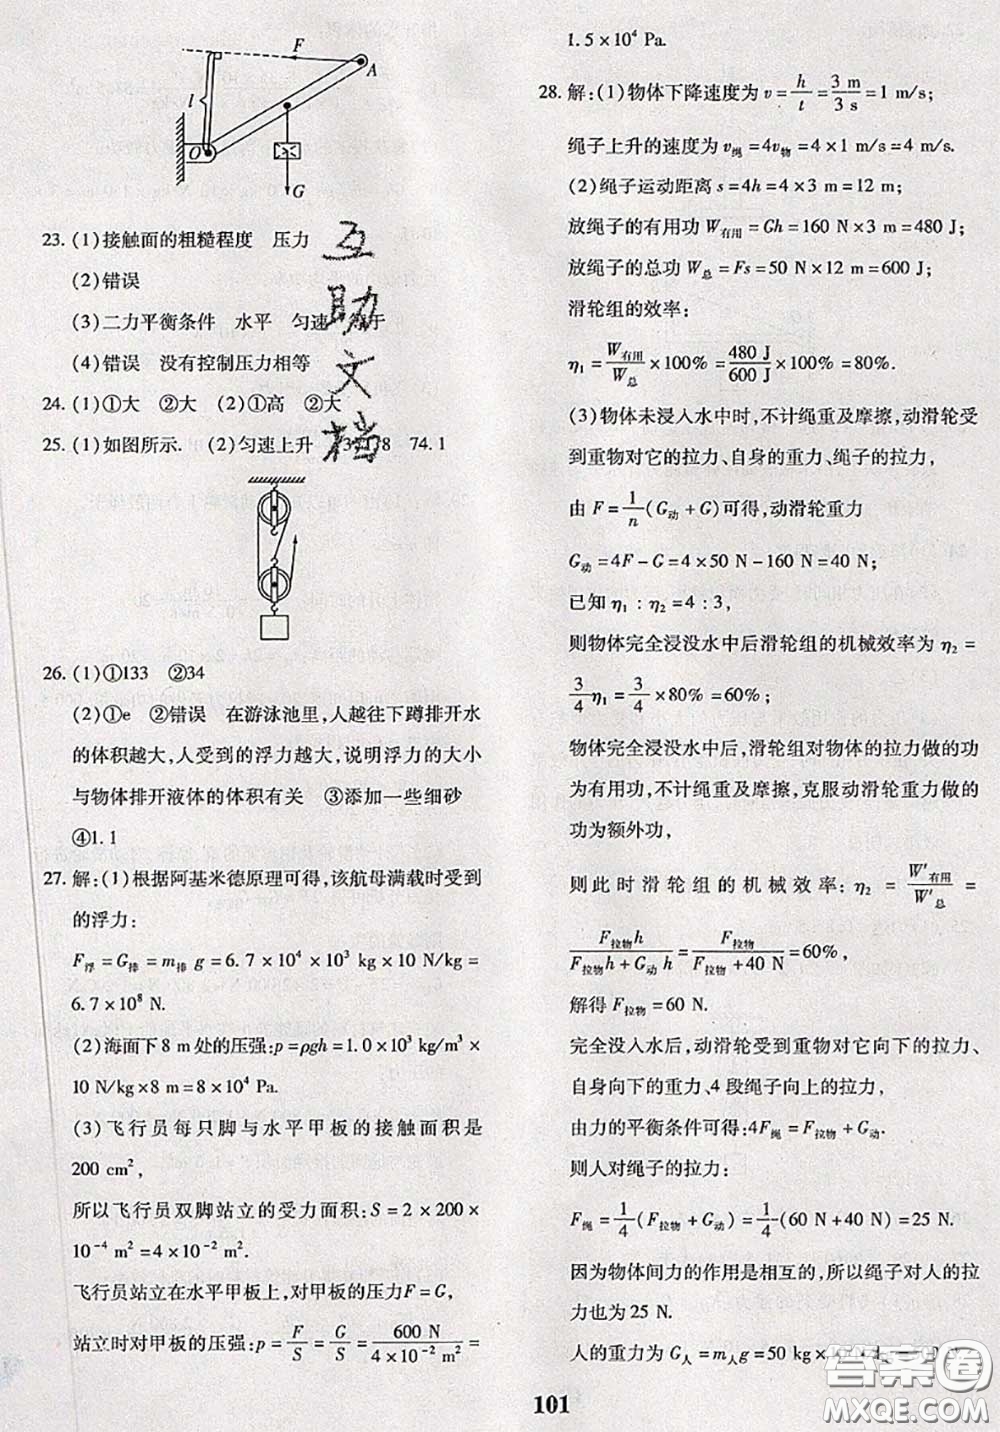 F
A
l
O
G
23. (1)接触面的粗糙程度 压力
(2)错误
(3)二力平衡条件 水平 匀速 于
(4)错误 没有控制压力相等
24. (1)①大 ②大 (2)①高 ②大
25. (1)如图所示. (2)匀速上升 8 74.1
互助文档
26. (1)①133 ②34
(2)①e ②错误 在游泳池里,人越往下蹲排开水
的体积越大,人受到的浮力越大,说明浮力的大小
与物体排开液体的体积有关 ③添加一些细砂
④1.1
27. 解:(1)根据阿基米德原理可得,该航母满载时受到
的浮力:
F浮=G排=m排 g=6.7×10⁴×10³ kg×10 N/kg=
6.7×10⁸ N.
(2)海面下8 m处的压强:p=ρgh=1.0×10³ kg/m³×10
N/kg×8 m=8×10⁴ Pa.
(3)飞行员每只脚与水平甲板的接触面积是
200 cm²,
所以飞行员双脚站立的受力面积:S=2×200×
10⁻⁴ m²=4×10⁻² m²,
飞行员站立在水平甲板上,对甲板的压力F=G,
站立时对甲板的压强:p=F/S=G/S=600 N/4×10⁻² m²=
1.5×10⁴ Pa.
28. 解:(1)物体下降速度为v=h/t=3 m/3 s=1 m/s;
绳子上升的速度为v绳=4v物=4×1 m/s=4 m/s.
(2)绳子运动距离s=4h=4×3 m=12 m;
放绳子的有用功W有用=Gh=160 N×3 m=480 J;
放绳子的总功W总=Fs=50 N×12 m=600 J;
滑轮组的效率:
η₁=W有用/W总×100%=480 J/600 J×100%=80%.
(3)物体未浸入水中时,不计绳重及摩擦,动滑轮受
到重物对它的拉力、自身的重力、绳子的拉力,
由F=1/n(G动+G)可得,动滑轮重力
G动=4F-G=4×50 N-160 N=40 N;
已知η₁:η₂=4:3,
则物体完全浸没水中后滑轮组的机械效率为η₂=
3/4η₁=3/4×80%=60%;
物体完全浸没水中后,滑轮组对物体的拉力做的功
为有用功,不计绳重及摩擦,克服动滑轮重力做的
功为额外功,
则此时滑轮组的机械效率:η₂=W′有用/W′总=
F拉物h/F拉物h+G动 h=F拉物/F拉物+40 N=60%,
解得F拉物=60 N.
完全没入水后,动滑轮受到重物对它向下的拉力、
自身向下的重力、4段绳子向上的拉力,
由力的平衡条件可得:4F绳=F拉物+G动.
则人对绳子的拉力:
F绳=1/4(F拉物+G动)=1/4(60 N+40 N)=25 N.
因为物体间力的作用是相互的,所以绳子对人的拉
力也为25 N.
人的重力为G人=m人g=50 kg×
答案圈
MXQE.COM
101